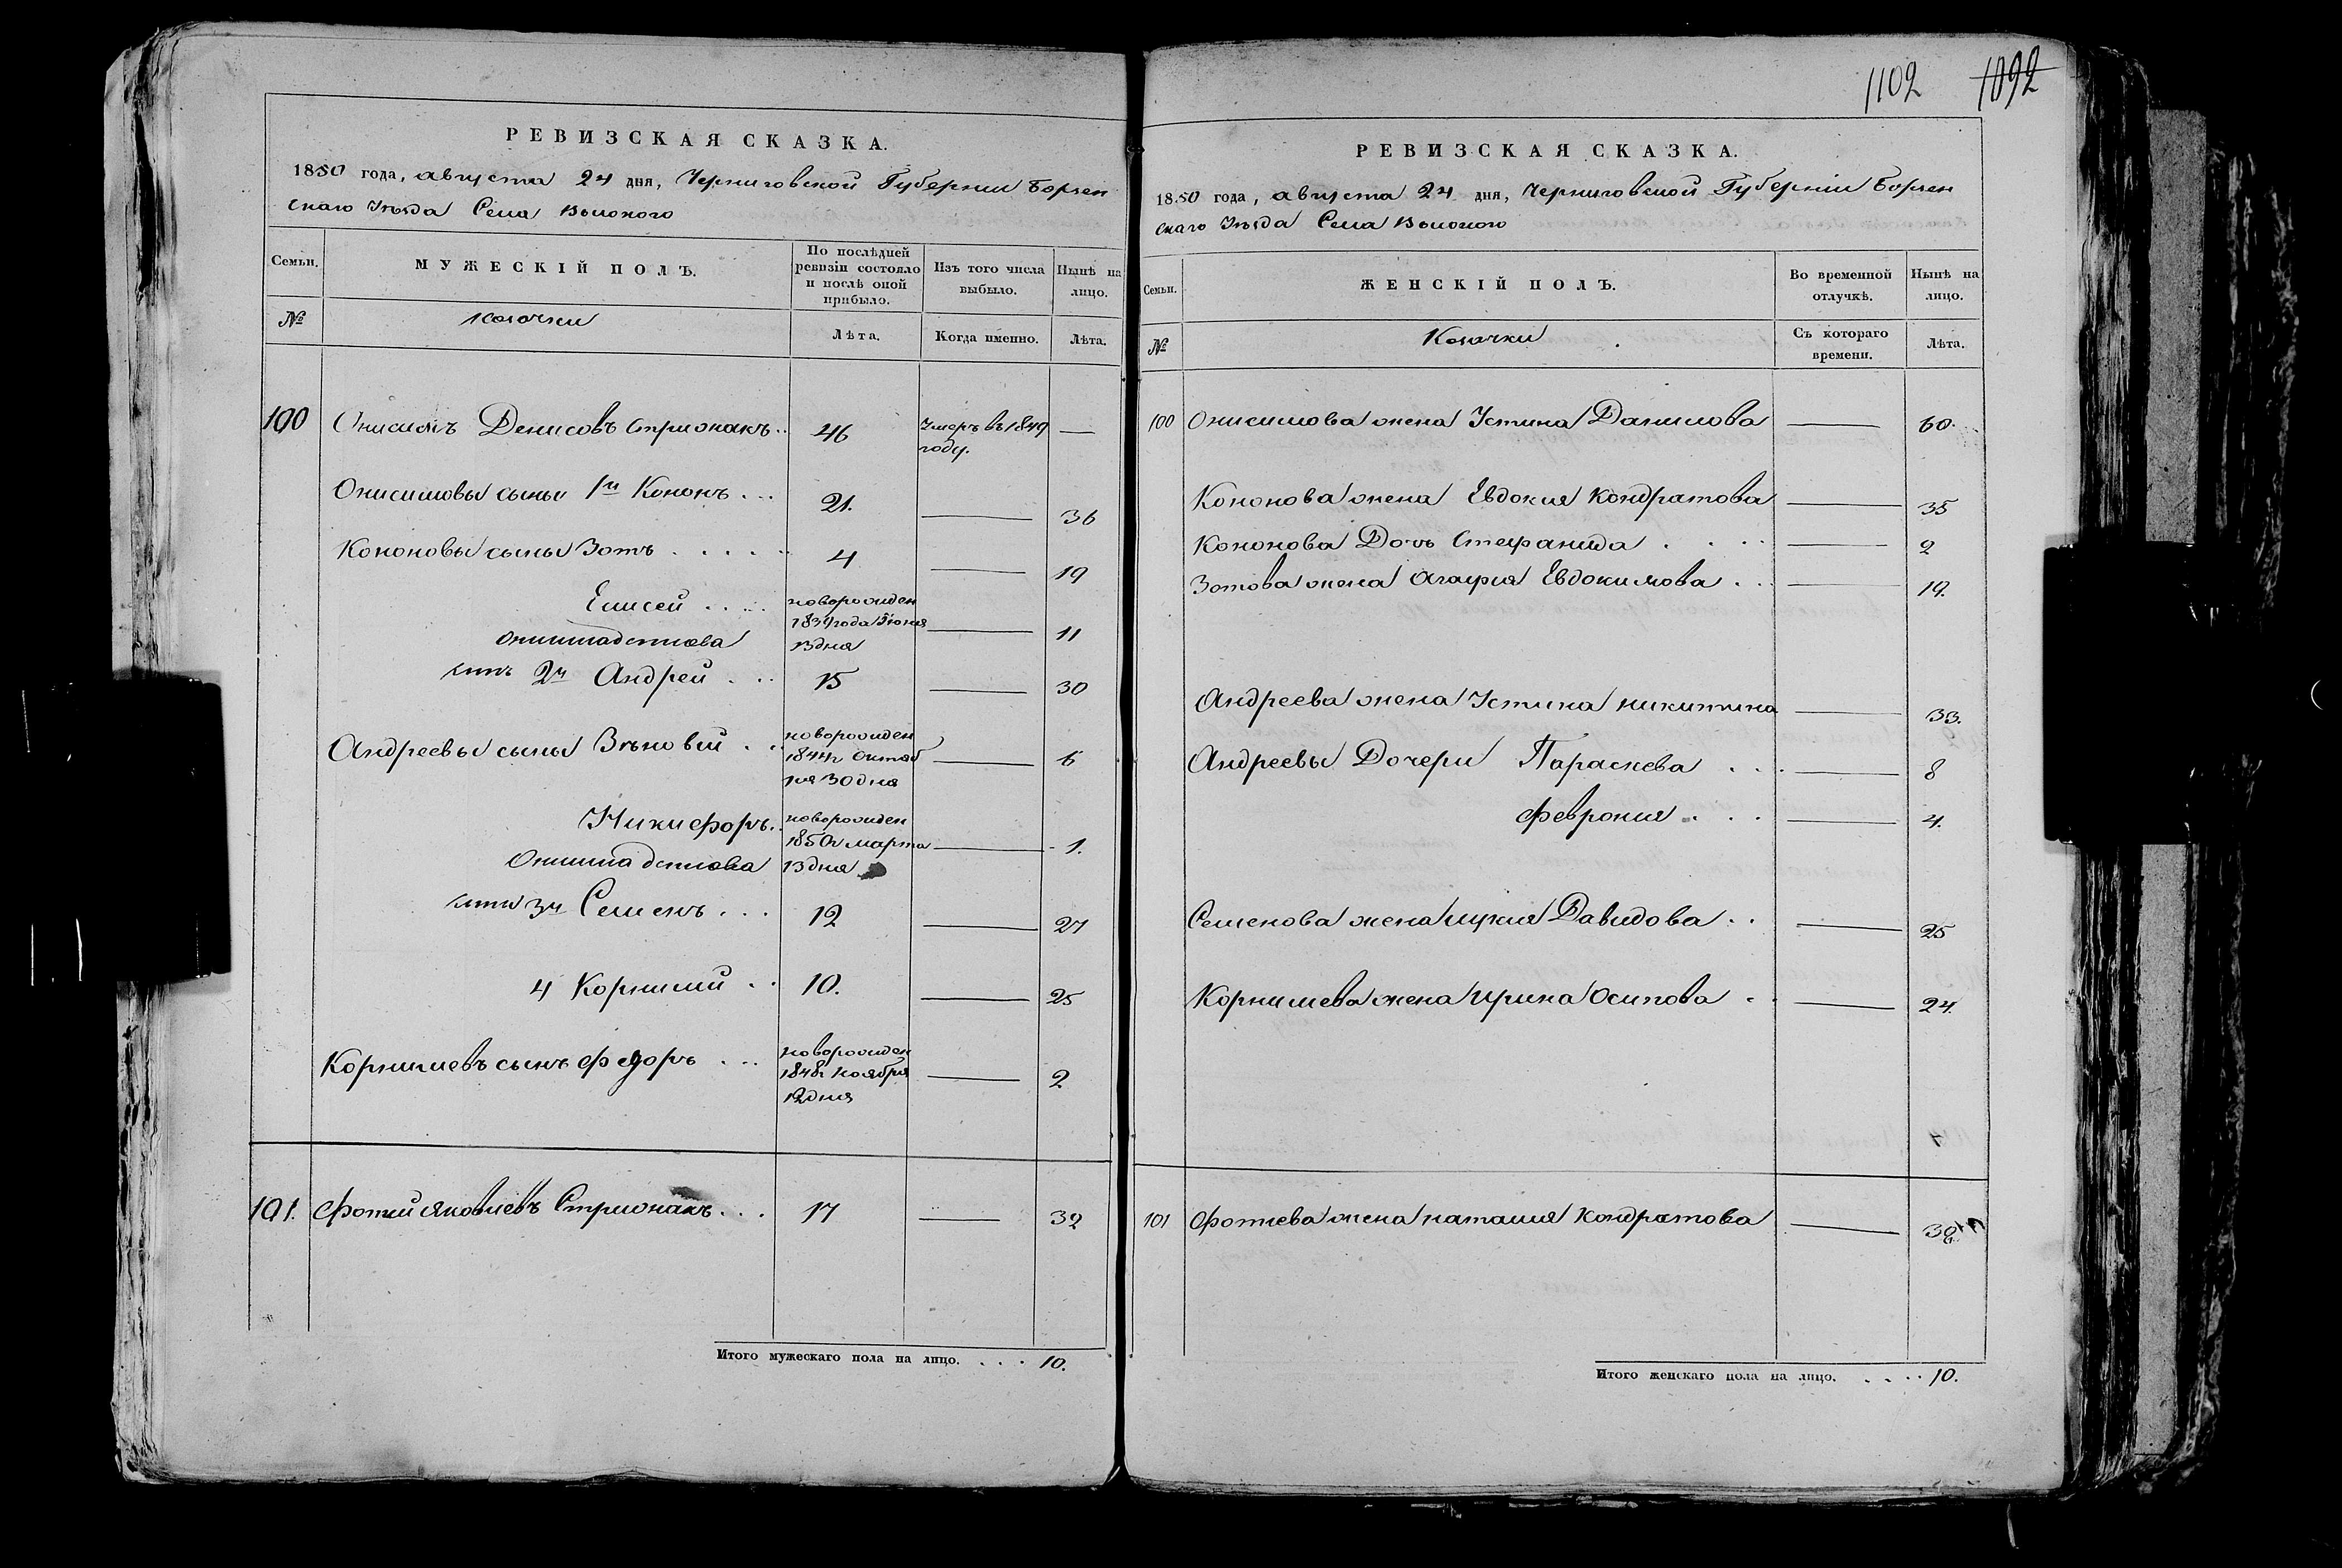 1102 1092
РЕВИЗСКАЯ СКАЗКА.
1850 года, августа 24 дня, Черниговской Губернии Борзен
скаго Уѣзда Села Высокого
Семьи.
МУЖЕСКІЙ ПОЛЪ.
По послѣдней
ревизіи состояло
и послѣ оной
прибыло.
Изъ того числа
выбыло.
Нынѣ на
лицо.
№
Козачки
Лѣта.
Когда именно.
Лѣта.
100 Онисимъ Денисовъ Стрионакъ.. 46 Умеръ въ 1849 —
году.
Онисимовы сыны 1й Кононъ ... 21. — 36
Кононовы сыны Зотъ ..... 4 — 19
Елисей .... новорожден
1839 года Июня — 11
Онисима Денисова 13 дня
сынъ 2й Андрей ... 15 — 30
Андреевы сыны Зѣновий .. новорожден
1844г Октяб — 6
ря 30 дня
Никифоръ.. новорожден
1850г марта — 1.
Онисима Денисова 13 дня
сынъ 3й Семенъ ... 12 — 27
4 Корнилий .. 10. — 25
Корнилиевъ сынъ Федоръ ... новорожден
1848г Ноября — 2
12 дня
101. Фотий Яковлевъ Стрионакъ... 17 — 32
Итого мужескаго пола на лицо. ... 10.
РЕВИЗСКАЯ СКАЗКА.
1850 года, августа 24 дня, Черниговской Губерніи Борзен
скаго Уѣзда Села Высокого
Семьи.
ЖЕНСКІЙ ПОЛЪ.
Во временной
отлучкѣ.
Нынѣ на
лицо.
№
Козачки
Съ котораго
времени.
Лѣта.
100 Онисимова жена Устина Данилова — 60.
Кононова жена Евдокия Кондратова — 35
Кононова Дочь Стефанида .... — 2
Зотова жена Агафия Евдокимова .. — 19.
Андреева жена Устина Никитина — 33.
Андреевы Дочери Параскева ... — 8
Феврония ... — 4.
Семенова жена Лукия Давидова .. — 25
Корнилиева жена Ирина Осипова .. — 24.
101 Фотиева жена Наталия Кондратова —
Итого женскаго пола на лицо. .... 10.